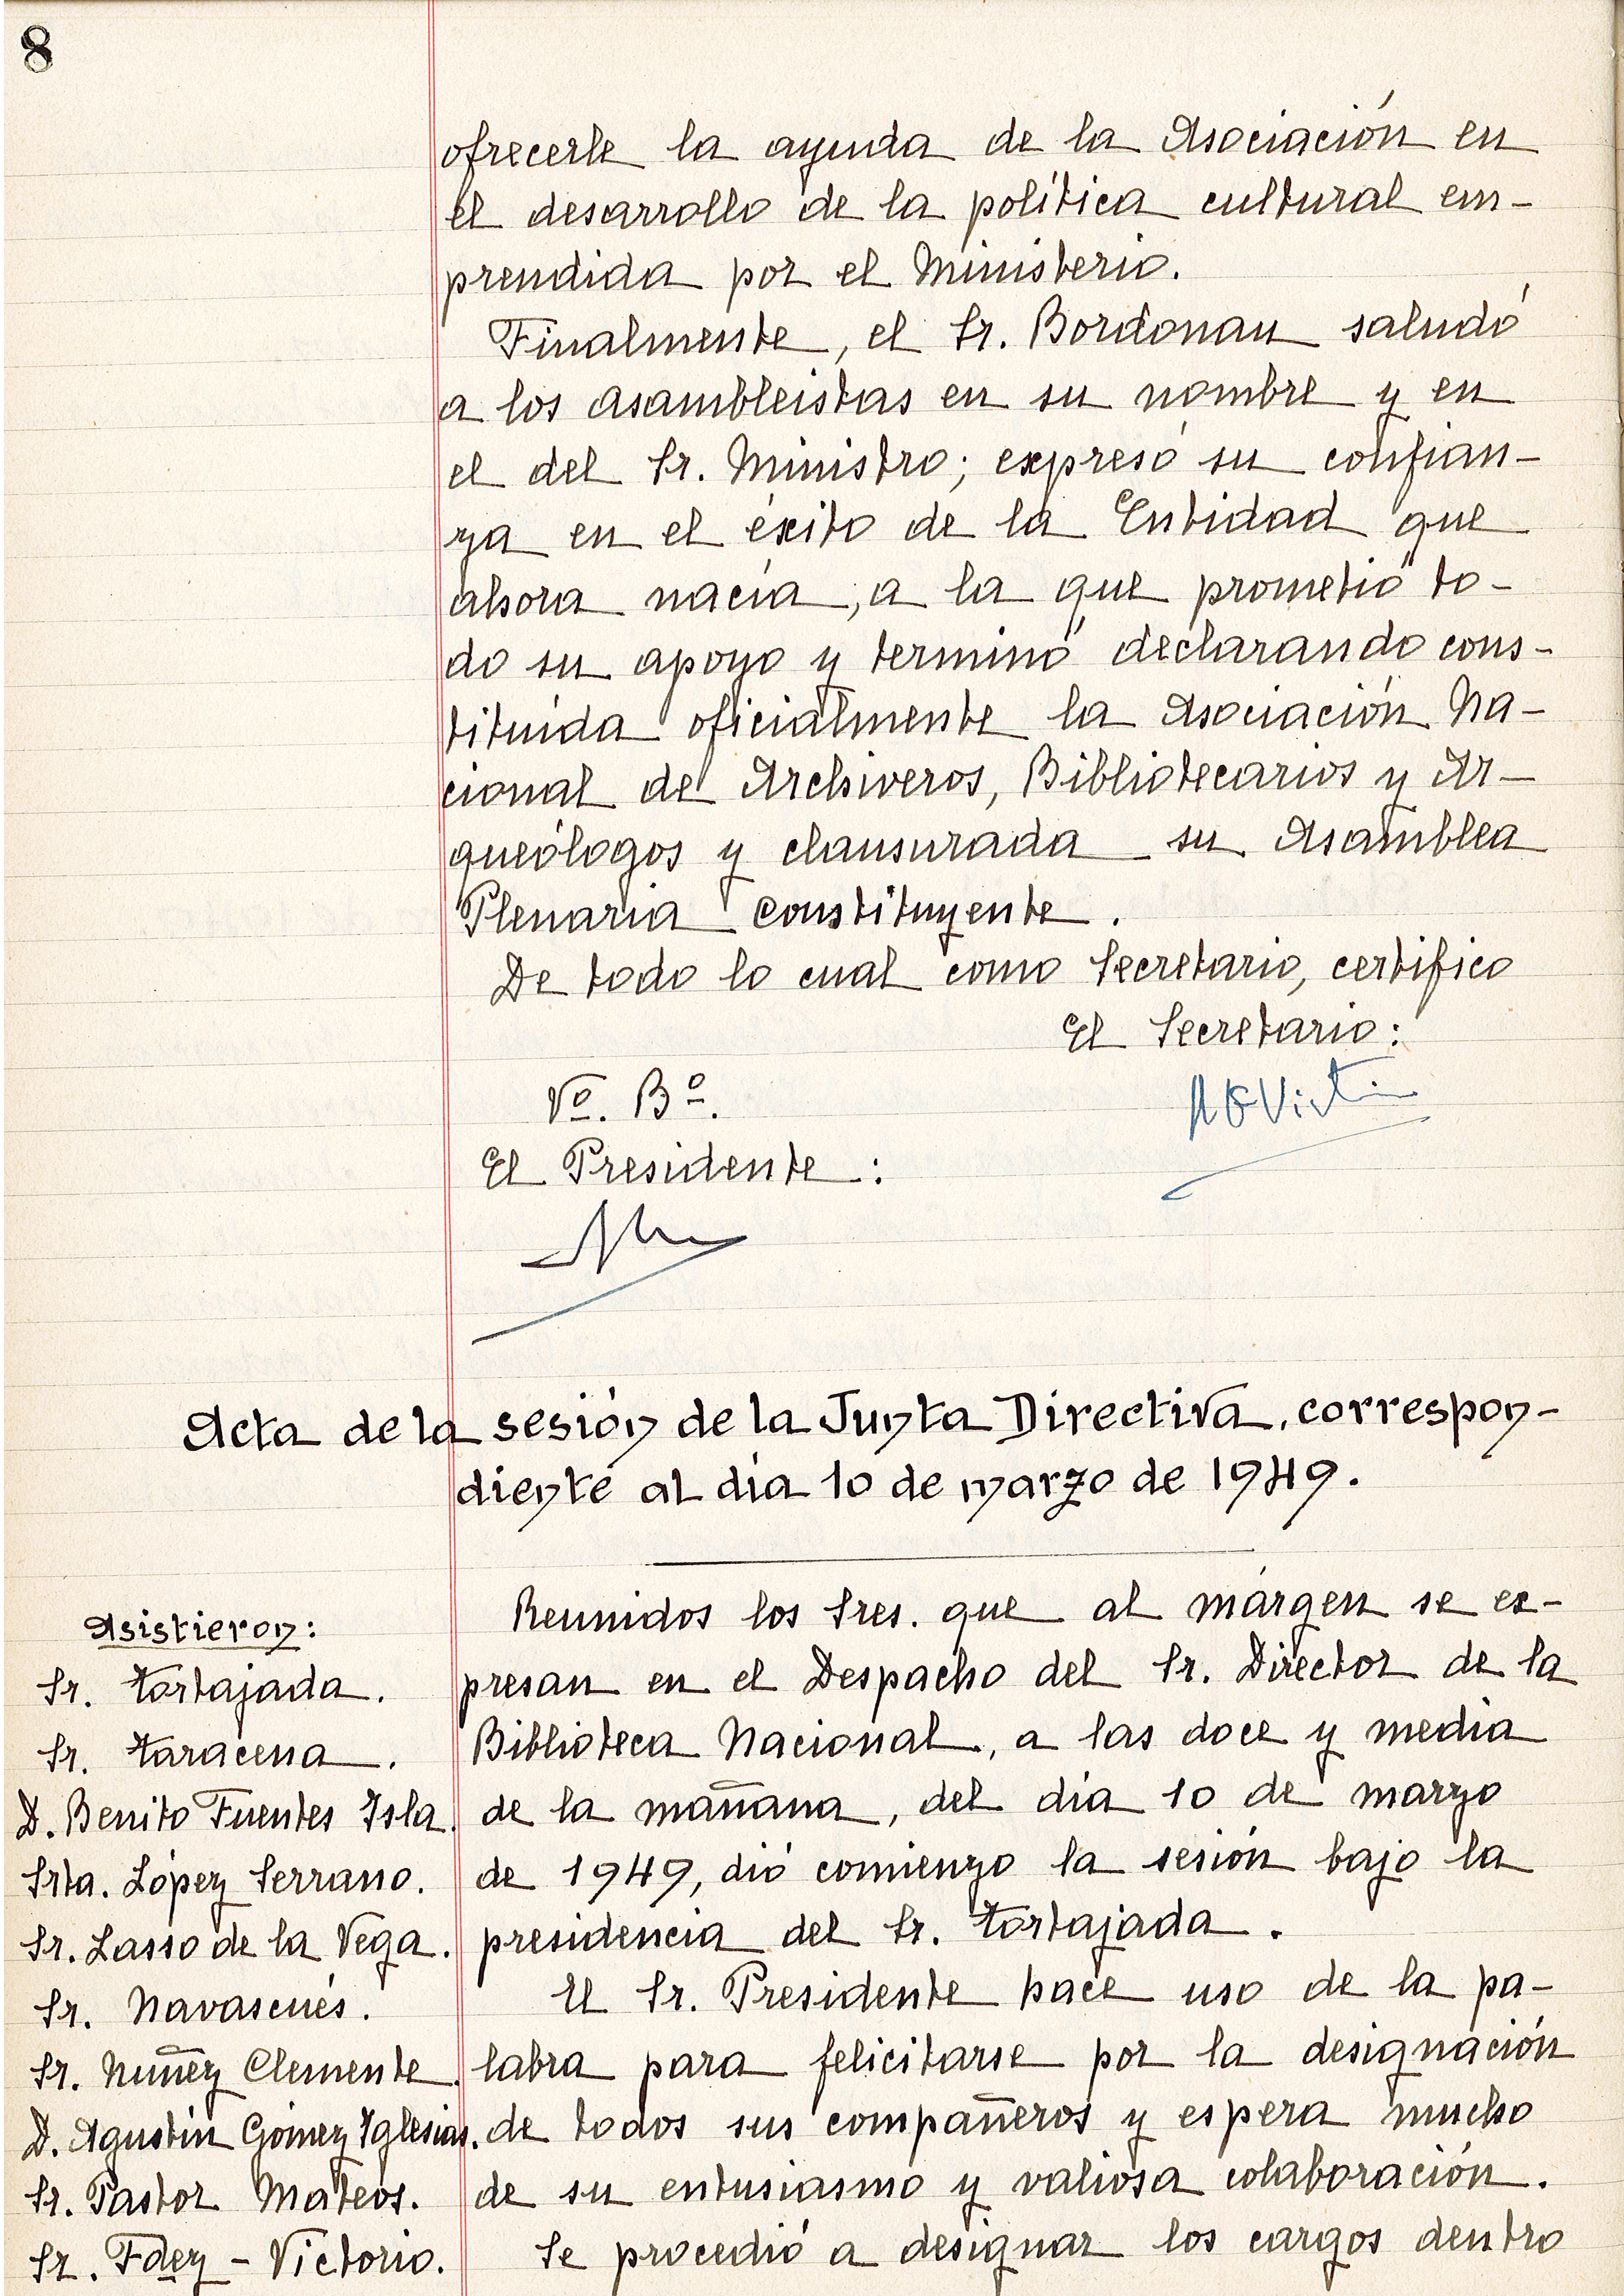 8
ofrecerle la ayuda de la Asociación en
el desarrollo de la política cultural em-
prendida por el Ministerio.
Finalmente, el Sr. Bordonau saludó
a los asambleistas en su nombre y en
el del Sr. Ministro; expresó su confian-
za en el éxito de la Entidad que
ahora nacía, a la que prometió to-
do su apoyo y terminó declarando cons-
tituída oficialmente la Asociación Na-
cional de Archiveros, Bibliotecarios y Ar-
queólogos y clausurada su Asamblea
Plenaria Constituyente.
De todo lo cual como Secretario, certifico
El Secretario:
Vº. Bº.
El Presidente:
Acta de la sesión de la Junta Directiva, correspon-
diente al día 10 de marzo de 1949.
Asistieron:
Sr. Tortajada.
Sr. Taracena.
D. Benito Fuentes Isla.
Srta. López Serrano.
Sr. Lasso de la Vega.
Sr. Navascués.
Sr. Nuñez Clemente.
D. Agustín Gómez Iglesias.
Sr. Pastor Mateos.
Sr. Fdez - Victorio.
Reunidos los Sres. que al márgen se ex-
presan en el Despacho del Sr. Director de la
Biblioteca Nacional, a las doce y media
de la mañana, del día 10 de marzo
de 1949, dió comienzo la sesión bajo la
presidencia del Sr. Tortajada.
El Sr. Presidente hace uso de la pa-
labra para felicitarse por la designación
de todos sus compañeros y espera mucho
de su entusiasmo y valiosa colaboración.
Se procedió a designar los cargos dentro